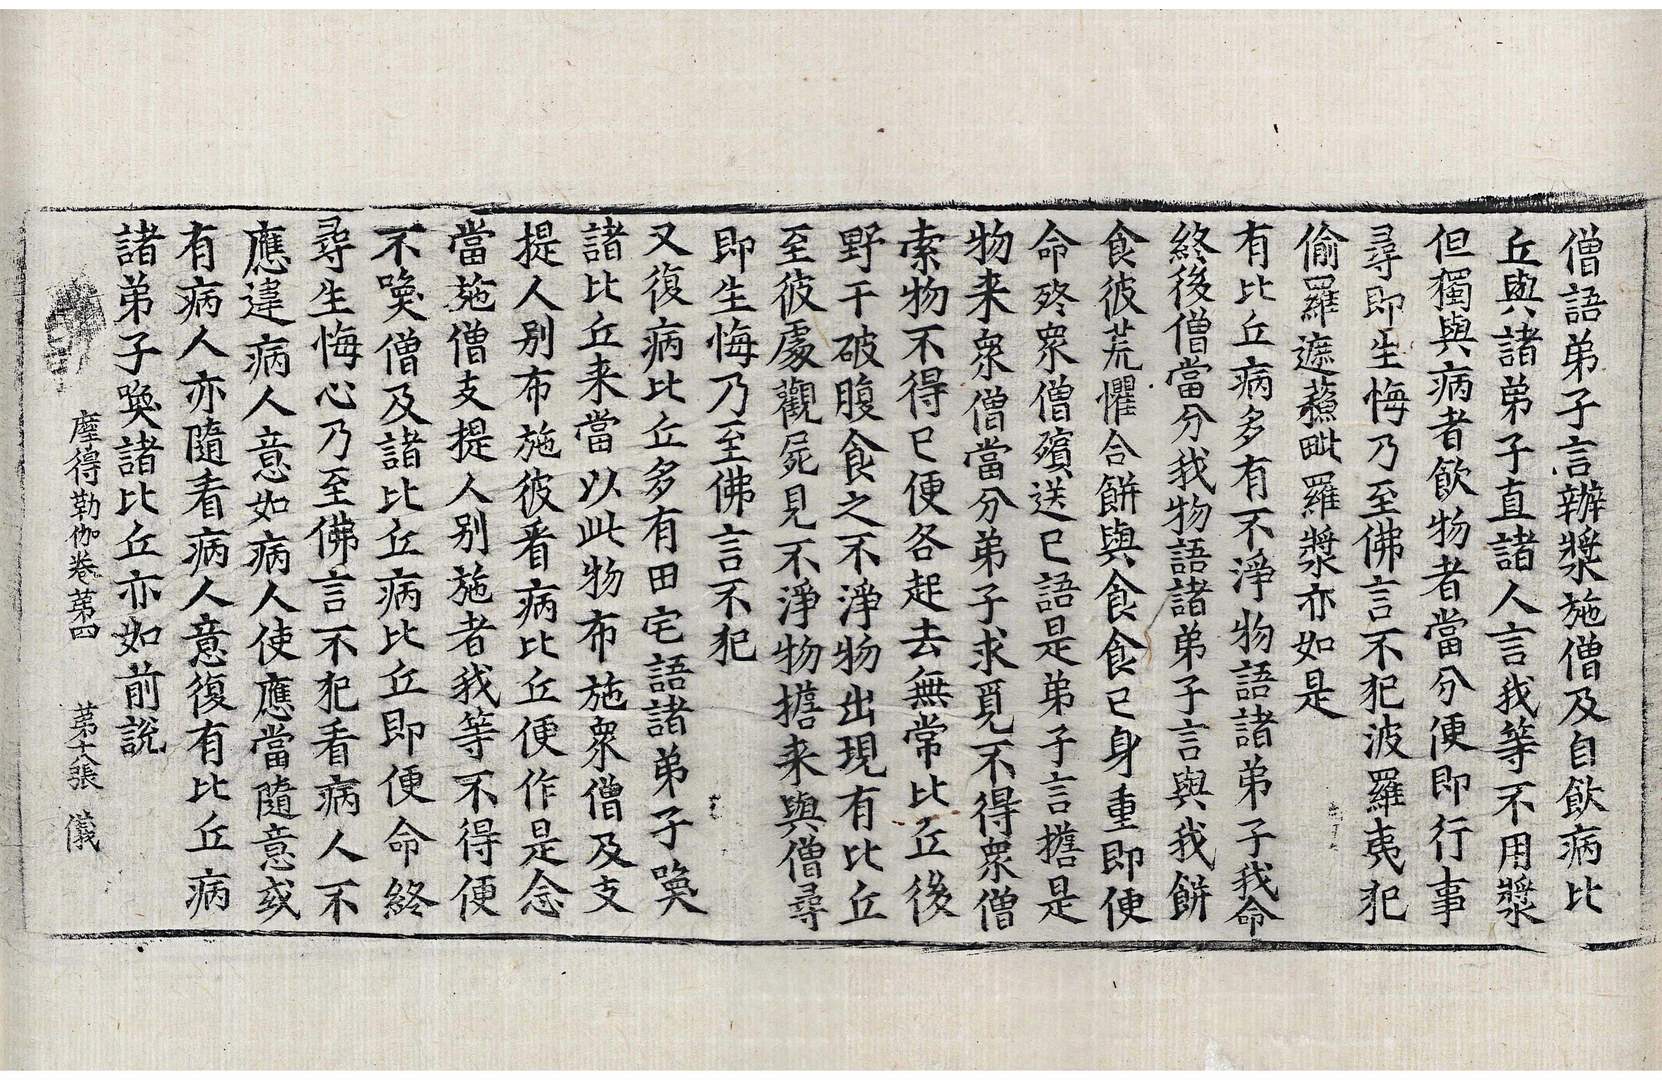 僧語弟子言辦漿施僧及自飲病比
丘與諸弟子直諸人言我等不用漿
但獨與病者飲物者當分便即行事
尋即生悔乃至佛言不犯波羅夷犯
偷羅遮蘓毗羅漿亦如是
有比丘病多有不淨物語諸弟子我命
終後僧當分我物語諸弟子言與我餅
食彼荒懼合餅與食食已身重即便
命終衆僧殯送已語是弟子言擔是
物来衆僧當分弟子求覓不得衆僧
索物不得已便各起去無常比丘後
野干破腹食之不淨物出現有比丘
至彼處觀屍見不淨物擔来與僧尋
即生悔乃至佛言不犯
又復病比丘多有田宅語諸弟子喚
諸比丘来當以此物布施衆僧及支
提人别布施彼看病比丘便作是念
當施僧支提人别施者我等不得便
不喚僧及諸比丘病比丘即便命終
尋生悔心乃至佛言不犯看病人不
應違病人意如病人使應當隨意或
有病人亦隨看病人意復有比丘病
諸弟子喚諸比丘亦如前説
摩得勒伽卷第四　第十八張　儀